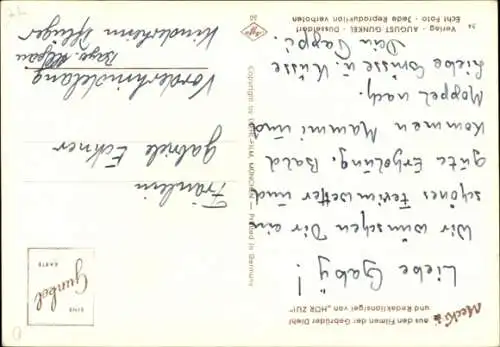 Mecki aus den Filmen der Gebrüder Diehl
und Redaktionsigel von „HÖR ZU!"
Liebe Gaby!
Wir wünschen Dir ein
schönes Ferienwetter und
gute Erholung. Bald
kommen Mammi und
Moppel nach.
Liebe Grüsse u. Küsse
Dein Pappi.
Verlag - AUGUST GUNKEL - Düsseldorf
Echt Foto - Jede Reproduktion verboten
Printed in Germany
EINE
Gunkel
KARTE
Fräulein
Gabriele Eckner
Vorderhindelang
Bez. Allgäu
Kinderheim Pflüger
Agfa
30